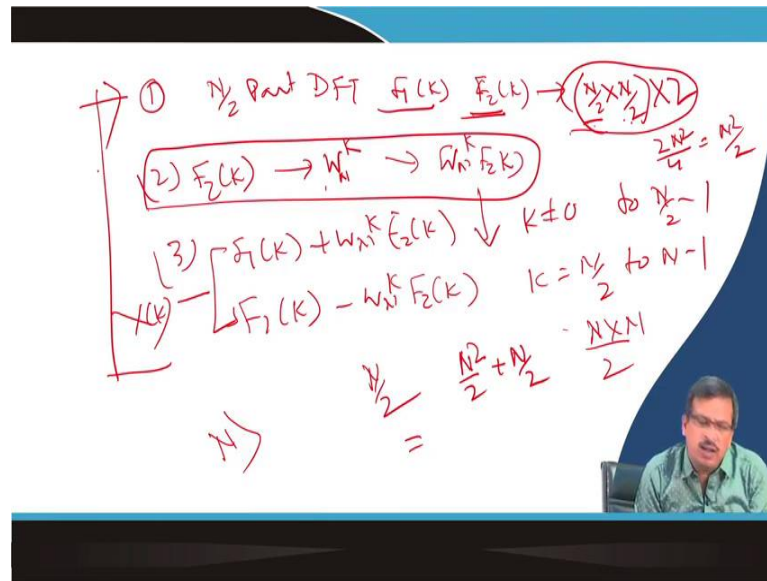 ① N/2 Part DFT F1(K) F2(K) → (N/2 x N/2) x 2
2N²/4 = N²/2
(2) F2(K) → W_N^K → W_N^K F2(K)
(3) F1(K) + W_N^K F2(K) ↓ K=0 to N/2 - 1
X(K) F1(K) - W_N^K F2(K) K = N/2 to N-1
N/2 N²/2 + N/2 NxN/2
N) =